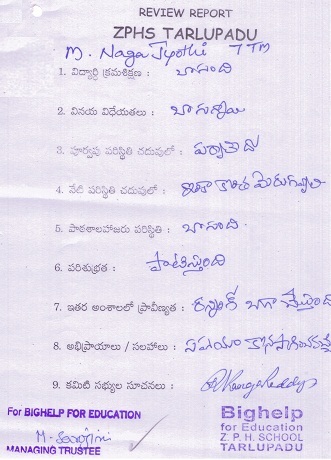 REVIEW REPORT
ZPHS TARLUPADU
M. Naga Jyothi 7TM
1. విద్యార్థి క్రమశిక్షణ : బాగుంది
2. వినయ విధేయతలు : బాగున్నాయి
3. పూర్వపు పరిస్థితి చదువులో :
4. నేటి పరిస్థితి చదువులో : ఇంకా కొంత మెరుగవ్వాలి
5. పాఠశాలహాజరు పరిస్థితి : బాగుంది.
6. పరిశుభ్రత : పాటిస్తుంది
7. ఇతర అంశాలలో ప్రావీణ్యత : రన్నింగ్ బాగా చేస్తుంది
8. అభిప్రాయాలు / సలహాలు :
9. కమిటి సభ్యుల సూచనలు :
For BIGHELP FOR EDUCATION
MANAGING TRUSTEE
Bighelp
for Education
Z. P. H. SCHOOL
TARLUPADU